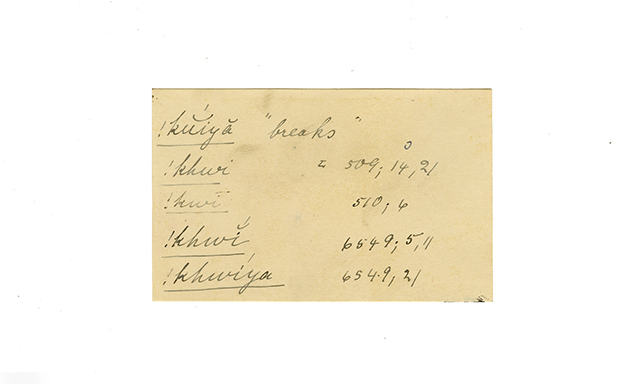 !kŭíyă "breaks"
!khwi = 509; 14, 21
!kwī 510; 6
!khwĭ 6549; 5, 11
!khwíya 6549; 21